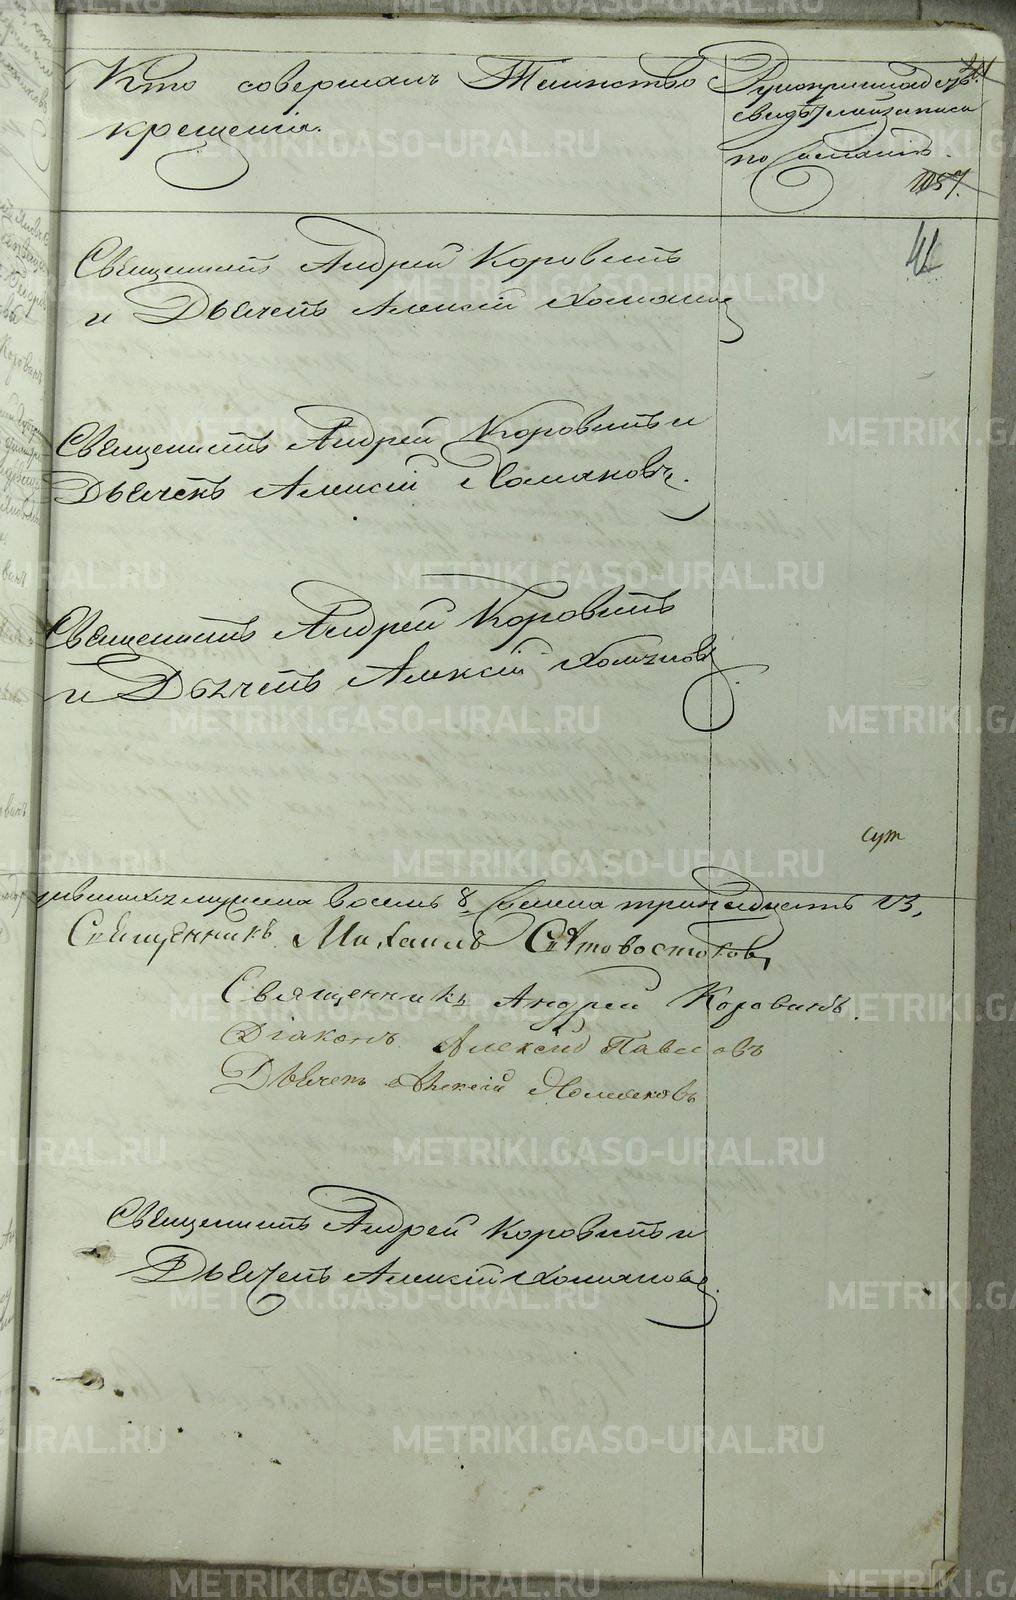 Кто совершалъ Таинство
крещенія.
Рукоприкладство
свидѣтелей записи
по желанію.
1057.
41
Священникъ Андрей Коровинъ
и Дьячекъ Алексій Хомяковъ
Священникъ Андрей Коровинъ и
Дьячекъ Алексій Хомяковъ.
Священникъ Андрей Коровинъ
и Дьячекъ Алексій Хомяковъ.
сут
мужеска восемь 8 женска тринадцать 13,
Священникъ Михаилъ Святовостоковъ,
Священникъ Андрей Коровинъ.
Діаконъ Алексій Павловъ
Дьячекъ Алексій Хомяковъ
Священникъ Андрей Коровинъ и
Дьячекъ Алексій Хомяковъ.
METRIKI.GASO-URAL.RU